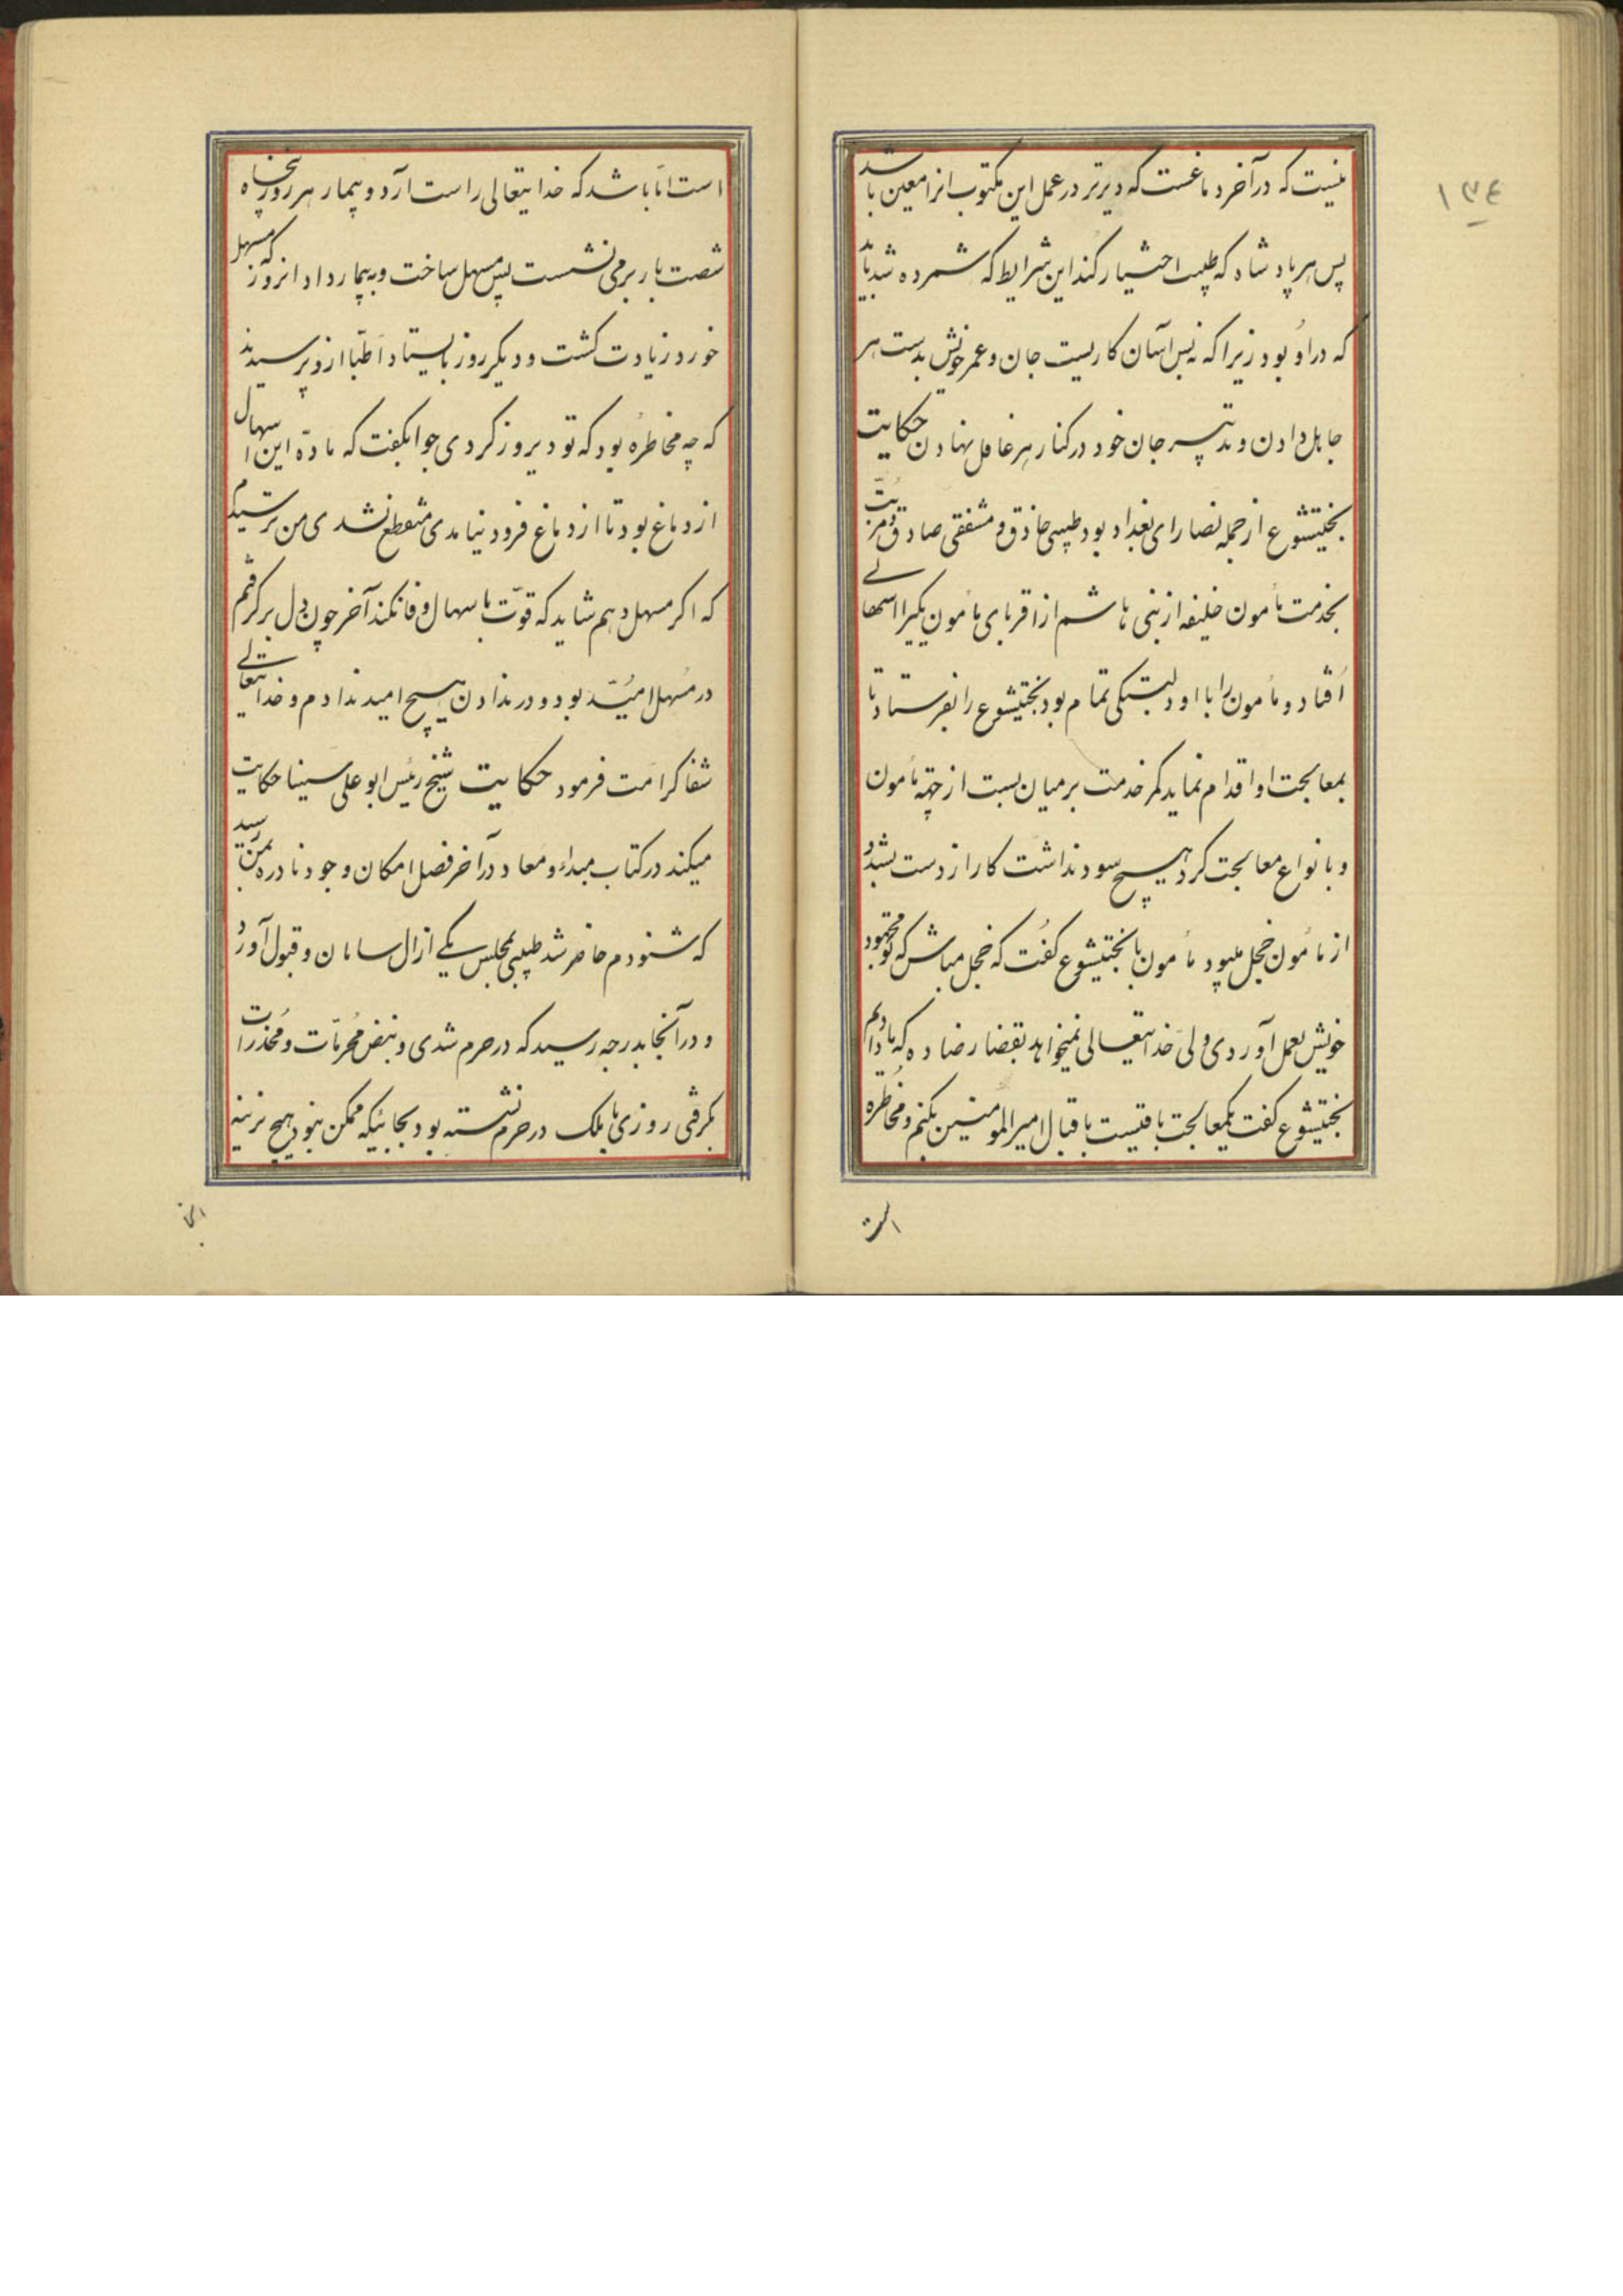 ۱۳۴
نیست که در آخر دماغست که دیرتر در عمل این مکتوب انرا معین باشد
پس هر پادشاه که طبیب اختیار کند این شرایط که شمرده شد باید
که در او بود زیرا که نه بس آسان کاریست جان و عمر خویش بدست هر
جاهل دادن و تدبیر جان خود در کنار هر غافل نهادن حکایت
بختیشوع از جمله نصارای بغداد بود طبیبی حاذق و مشفقی صادق و مرتب
بخدمت مأمون خلیفه از بنی هاشم از اقربای مأمون یکیرا اسهالی
افتاد و مأمون را با او دلبستگی تمام بود بختیشوع را بفرستاد تا
بمعالجت او اقدام نماید کمر خدمت بر میان بست از جهة مأمون
و بانواع معالجت کرد هیچ سود نداشت کار از دست بشد و
از مأمون خجل میبود مأمون با بختیشوع گفت که خجل مباش که تو مجهود
خویش بعمل آوردی ولی خدایتعالی نمیخواهد بقضا رضا ده که ما دادیم
بختیشوع گفت یکمعالجت باقیست باقبال امیرالمومنین بکنم و مخاطره
است
است اما باشد که خدایتعالی راست آرد و بیمار هر روز پنجاه
شصت بار بر می نشست پس مسهل ساخت و به بیمار داد انروز که مسهل
خورد زیادت گشت و دیگر روز بایستاد اطبا ازو پرسیدند
که چه مخاطره بود که تو دیروز کردی جوابگفت که مادّه این اسهال
از دماغ بود تا از دماغ فرود نیامدی منقطع نشدی من ترسیدم
که اگر مسهل دهم شاید که قوّت باسهال وفا نکند آخر چون دل بر گرفتم
در مسهل امّید بود و در ندادن هیچ امید ندادم و خدایتعالی
شفا کرامت فرمود حکایت شیخ رئیس ابو علی سینا حکایت
میکند در کتاب مبداء و معاد در آخر فصل امکان وجود نادره بمن رسید
که شنودم حاضر شد طبیبی بمجلس یکی از ال سامان و قبول آورد
و در آنجا بدرجه رسید که در حرم شدی و نبض محرمات و مخدرات
بگرفتی روزی با ملک در حرم نشسته بود بجائیکه ممکن نبود هیچ نرینه